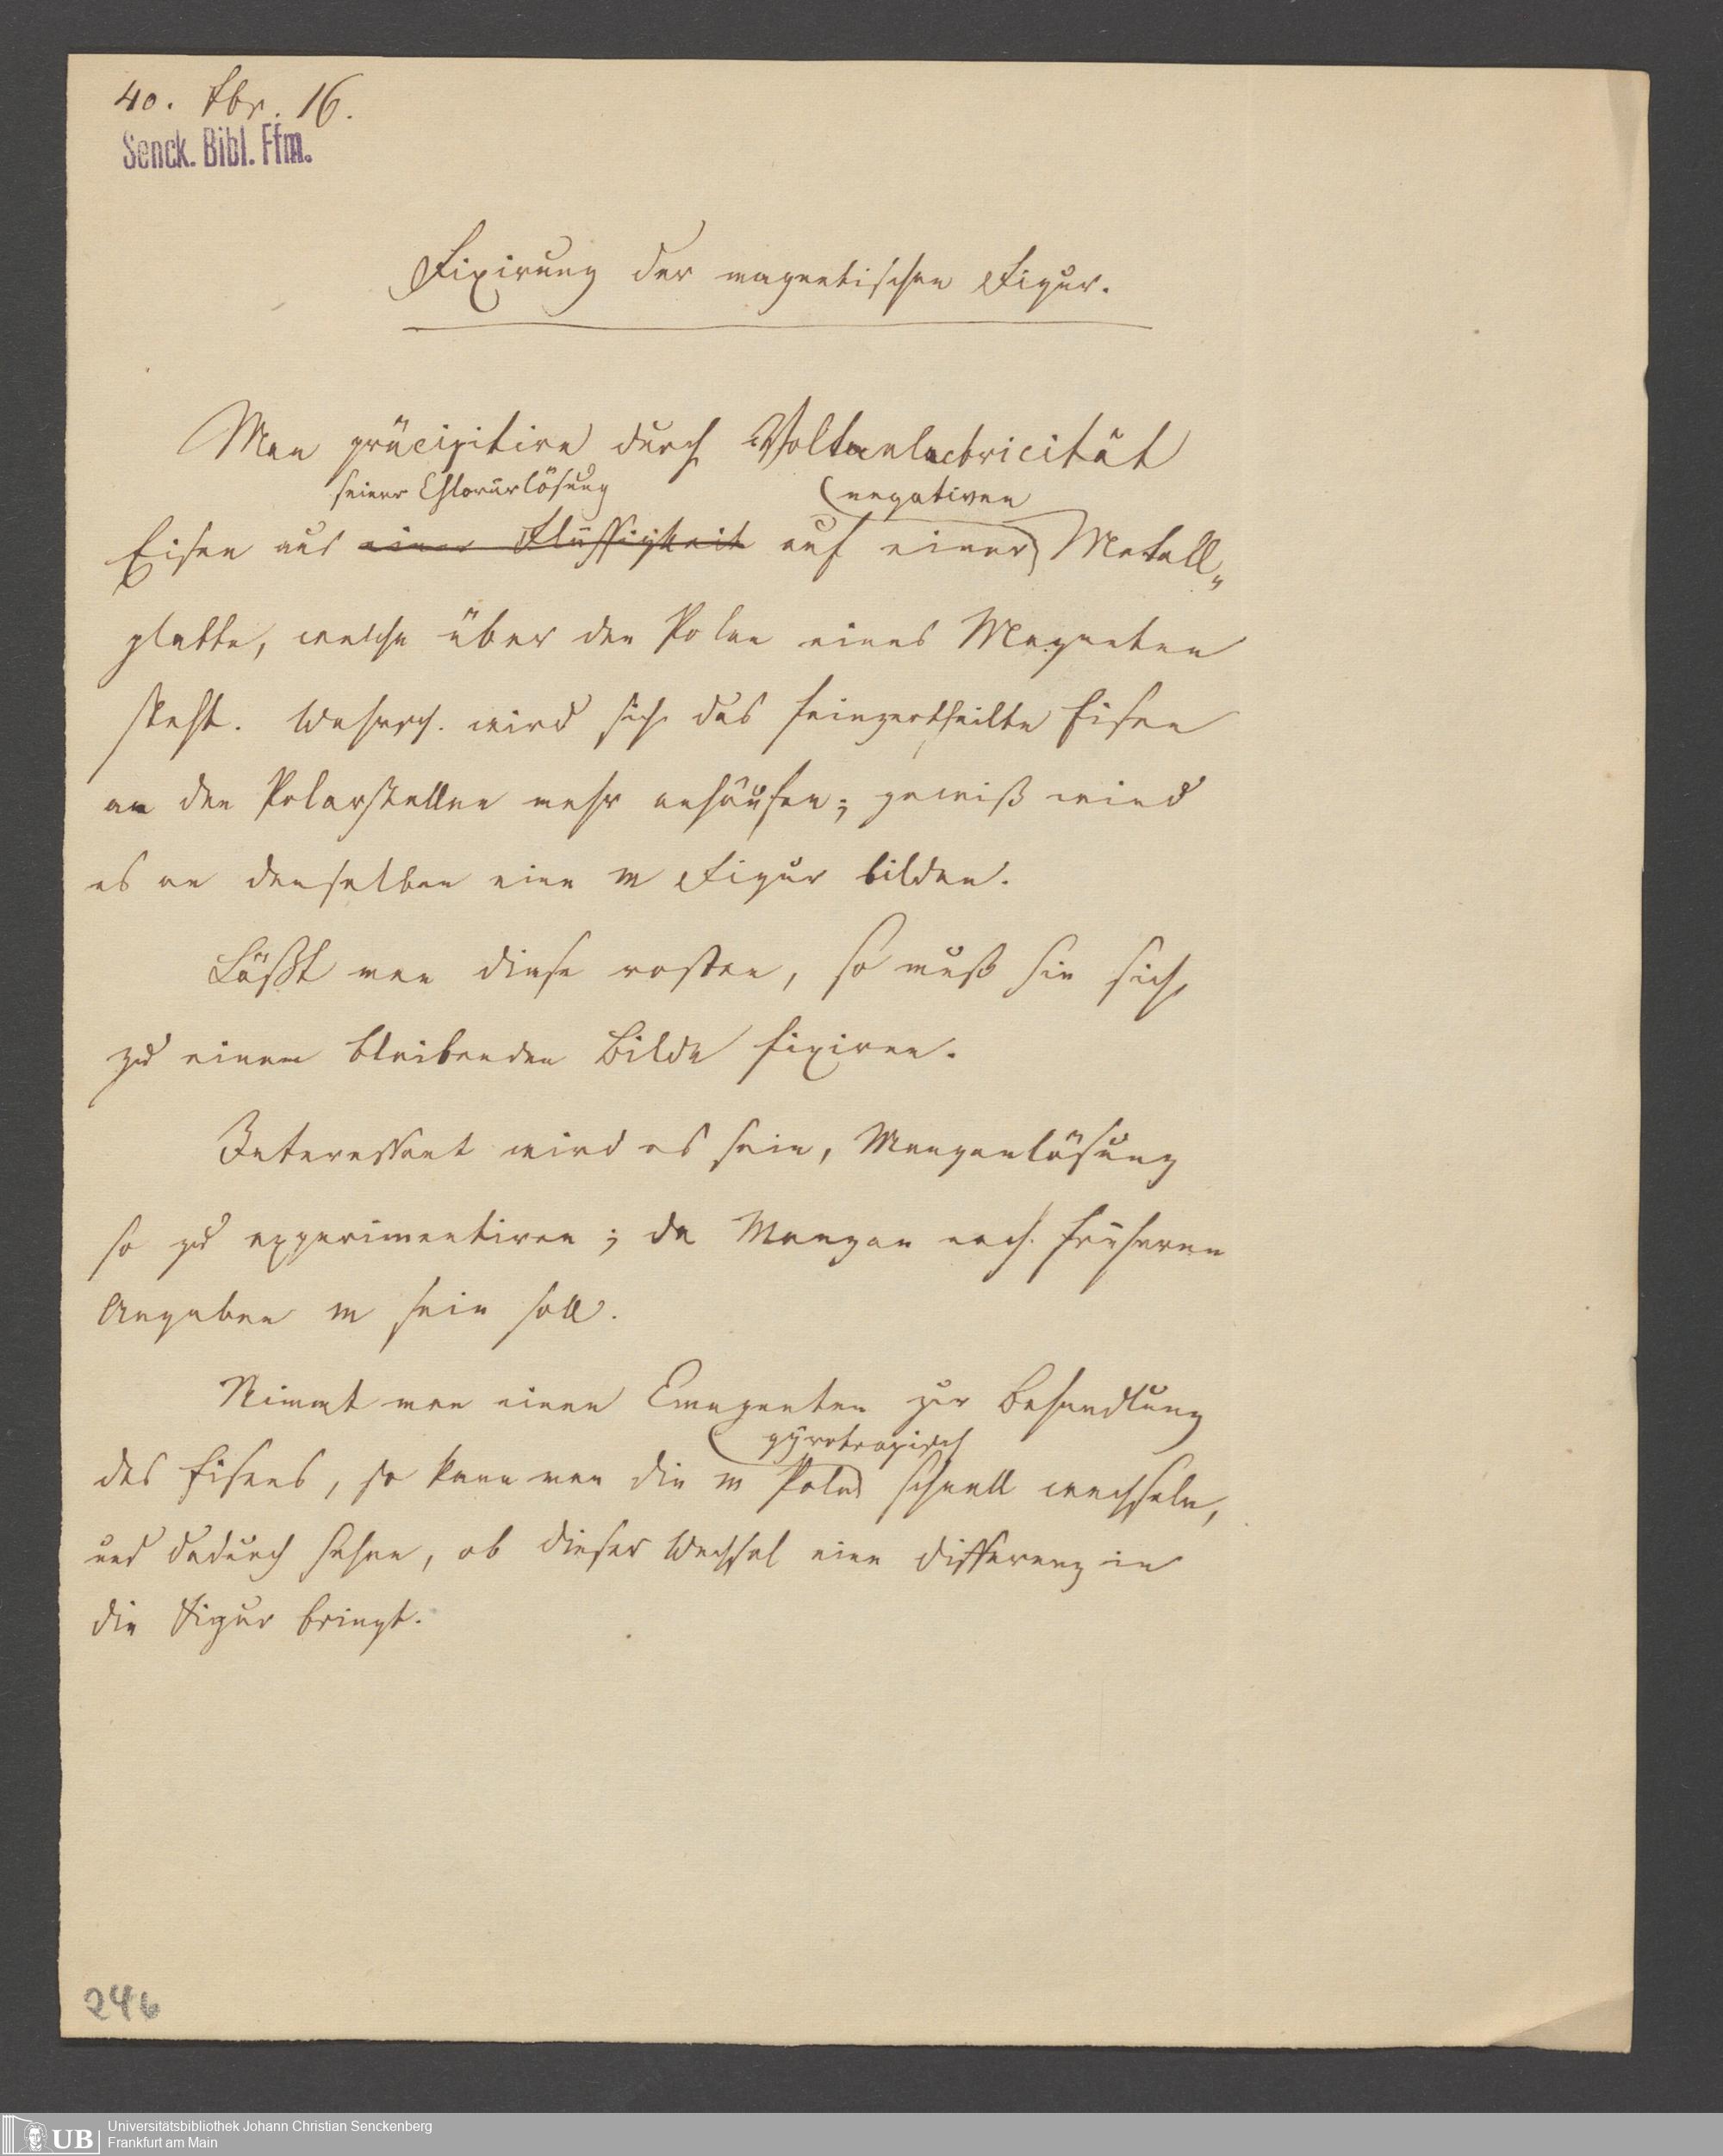 40. Fbr. 16.
Senck. Bibl. Ffm.
Fixirung der magnetischen Figur.
Man präcipitire durch Voltaelectricität
seiner Chlorürlösung
negativen
Eisen aus einer Flüssigkeit auf einer Metall„
platte, welche über den Polen eines Magneten
steht. Wahrsch. wird sich das feinzertheilte Eisen
an den Polarstellen mehr anhäufen; gewiß wird
es an denselben eine m Figur bilden.
Läßt man diese rosten, so muß sie sich
zu einem bleibenden Bilde fixiren.
Interessant wird es sein, Manganlösung
so zu experimentiren; da Mangan nach früheren
Angaben m sein soll.
Nimmt man einen Emagneten zur Behandlung
gyrotropisch
des Eisens, so kann man die m Pole schnell wechseln,
und dadurch sehen, ob dieser Wechsel eine Differenz in
die Figur bringt.
246
UB
Universitätsbibliothek Johann Christian Senckenberg
Frankfurt am Main